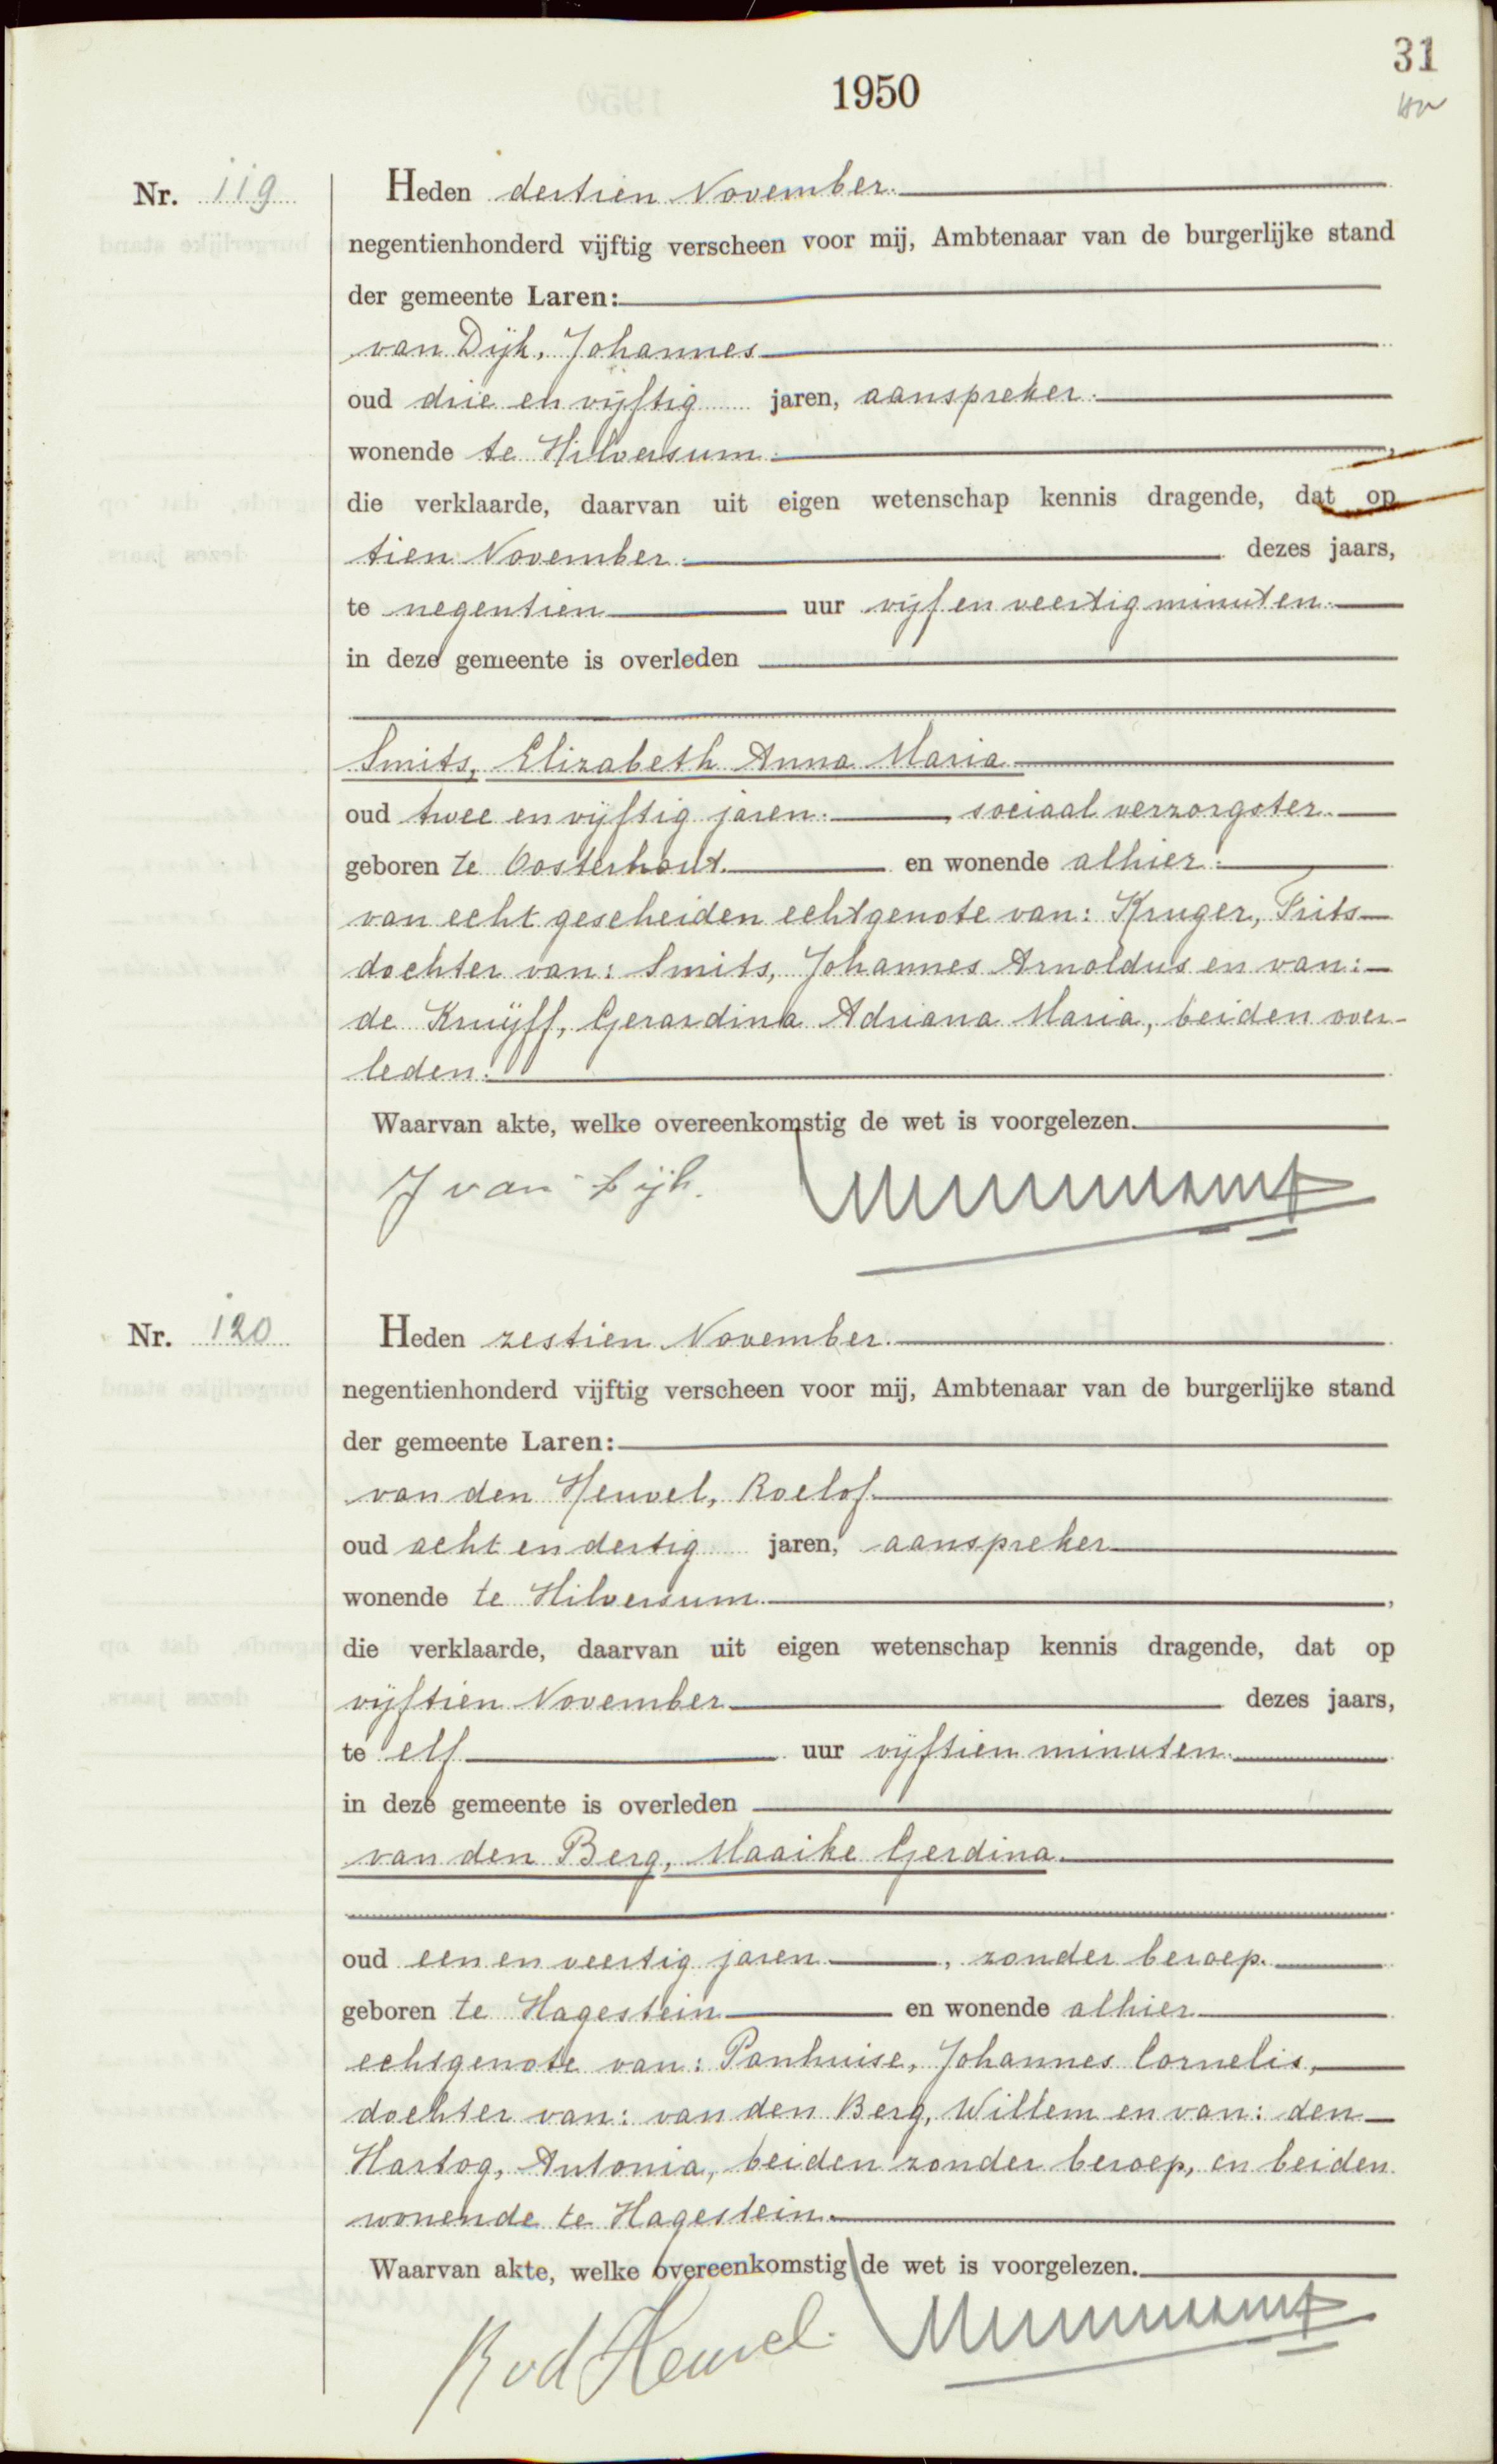 31
1950
Nr. 119
Heden dertien November.
negentienhonderd vijftig verscheen voor mij, Ambtenaar van de burgerlijke stand
der gemeente Laren:
van Dijk, Johannes
oud drie en vijftig jaren, aanspreker.
wonende te Hilversum.,
die verklaarde, daarvan uit eigen wetenschap kennis dragende, dat op
tien November. dezes jaars,
te negentien uur vijf en veertig minuten.
in deze gemeente is overleden
Smits, Elizabeth Anna Maria
oud twee en vijftig jaren., sociaal verzorgster.
geboren te Oosterhout. en wonende alhier.
van echt gescheiden echtgenote van: Kruger, Frits
dochter van: Smits, Johannes Arnoldus en van:
de Kruijff, Gerardina Adriana Maria, beiden over-
leden.
Waarvan akte, welke overeenkomstig de wet is voorgelezen.
J van Dijk.
Nr. 120
Heden zestien November.
negentienhonderd vijftig verscheen voor mij, Ambtenaar van de burgerlijke stand
der gemeente Laren:
van den Heuvel, Roelof.
oud acht en dertig jaren, aanspreker
wonende te Hilversum.,
die verklaarde, daarvan uit eigen wetenschap kennis dragende, dat op
vijftien November dezes jaars,
te elf uur vijftien minuten.
in deze gemeente is overleden
van den Berg, Maaike Gerdina.
oud een en veertig jaren, zonder beroep.
geboren te Hagestein en wonende alhier
echtgenote van: Panhuise, Johannes Cornelis,
dochter van: van den Berg, Willem en van: den
Hartog, Antonia, beiden zonder beroep, en beiden
wonende te Hagestein.
Waarvan akte, welke overeenkomstig de wet is voorgelezen.
R vd Heuvel.